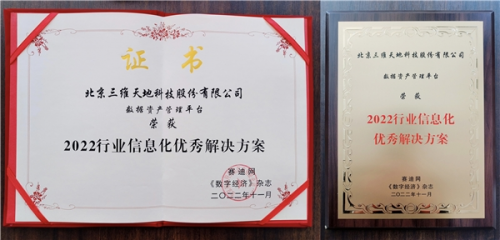 证书
北京三维天地科技股份有限公司
数据资产管理平台
荣获
2022行业信息化优秀解决方案
赛迪网
《数字经济》杂志
二〇二二年十一月
北京三维天地科技股份有限公司
数据资产管理平台
荣获
2022行业信息化
优秀解决方案
赛迪网
《数字经济》杂志
二〇二二年十一月